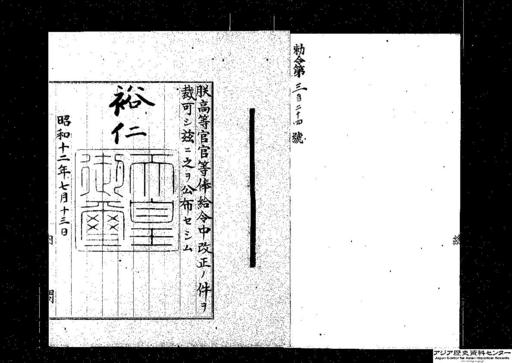 勅令第三百二十四號
朕高等官官等俸給令中改正ノ件ヲ
裁可シ玆ニ之ヲ公布セシム
裕仁
天皇御璽
昭和十二年七月十三日
内閣
アジア歴史資料センター
Japan Center for Asian Historical Records